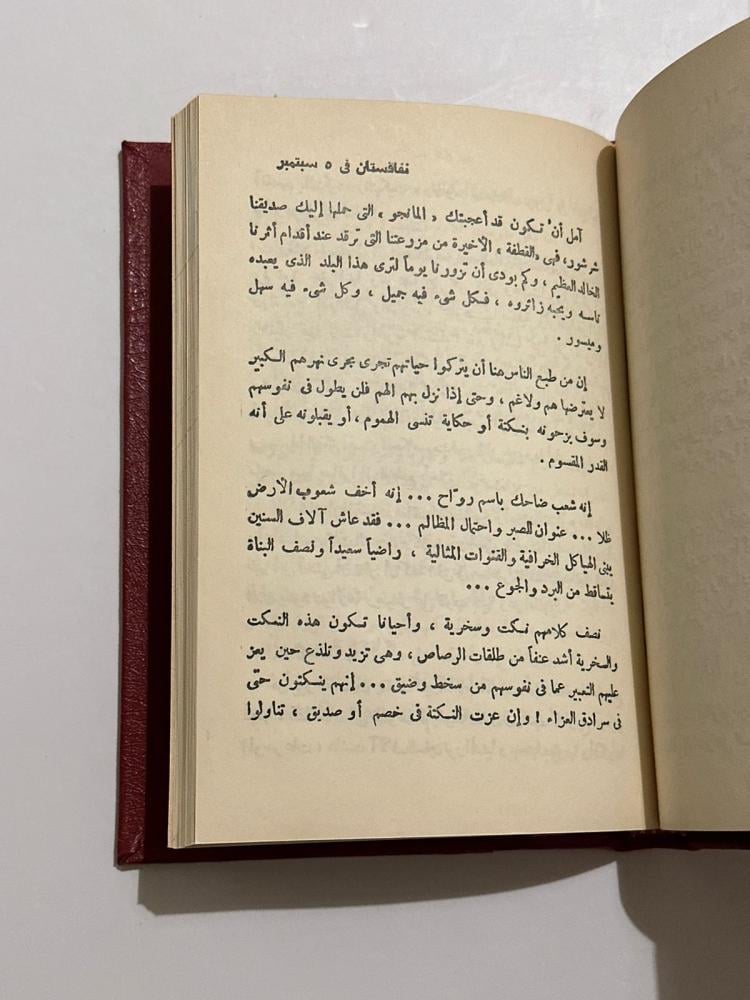 نفاقستان فى ٥ سبتمبر
آمل أن تكون قد أعجبتك « المانجو » التى حملها إليك صديقنا
شرشور، فهى «القطفة» الأخيرة من مزرعتنا التى ترقد عند أقدام أثرنا
الخالد العظيم ، وكم بودى أن تزورنا يوماً لترى هذا البلد الذى يعبده
ناسه ويحبه زائروه ، فكل شىء فيه جميل ، وكل شىء فيه سهل
وميسور .
إن من طبع الناس هنا أن يتركوا حياتهم تجرى مجرى نهرهم الكبير
لا يعترضها هم ولا غم ، وحتى إذا نزل بهم الهم فلن يطول فى نفوسهم
وسوف يزحونه بنكتة أو حكاية تنسى الهموم ، أو يقبلونه على أنه
القدر المقسوم .
إنه شعب ضاحك باسم روّاح ... إنه أخف شعوب الأرض
ظلا ... عنوان للصبر واحتمال المظالم ... فقد عاش آلاف السنين
يبنى الهياكل الخرافية والقنوات المثالية ، راضياً سعيداً ونصف البناة
يتساقط من البرد والجوع ...
نصف كلامهم نكت وسخرية ، وأحيانا تكون هذه النكت
والسخرية أشد عنفاً من طلقات الرصاص ، وهى تزيد وتلذع حين يعز
عليهم التعبير عما فى نفوسهم من سخط وضيق ... إنهم ينكتون حتى
فى سرادق العزاء ! وإن عزت النكتة فى خصم أو صديق ، تناولوا